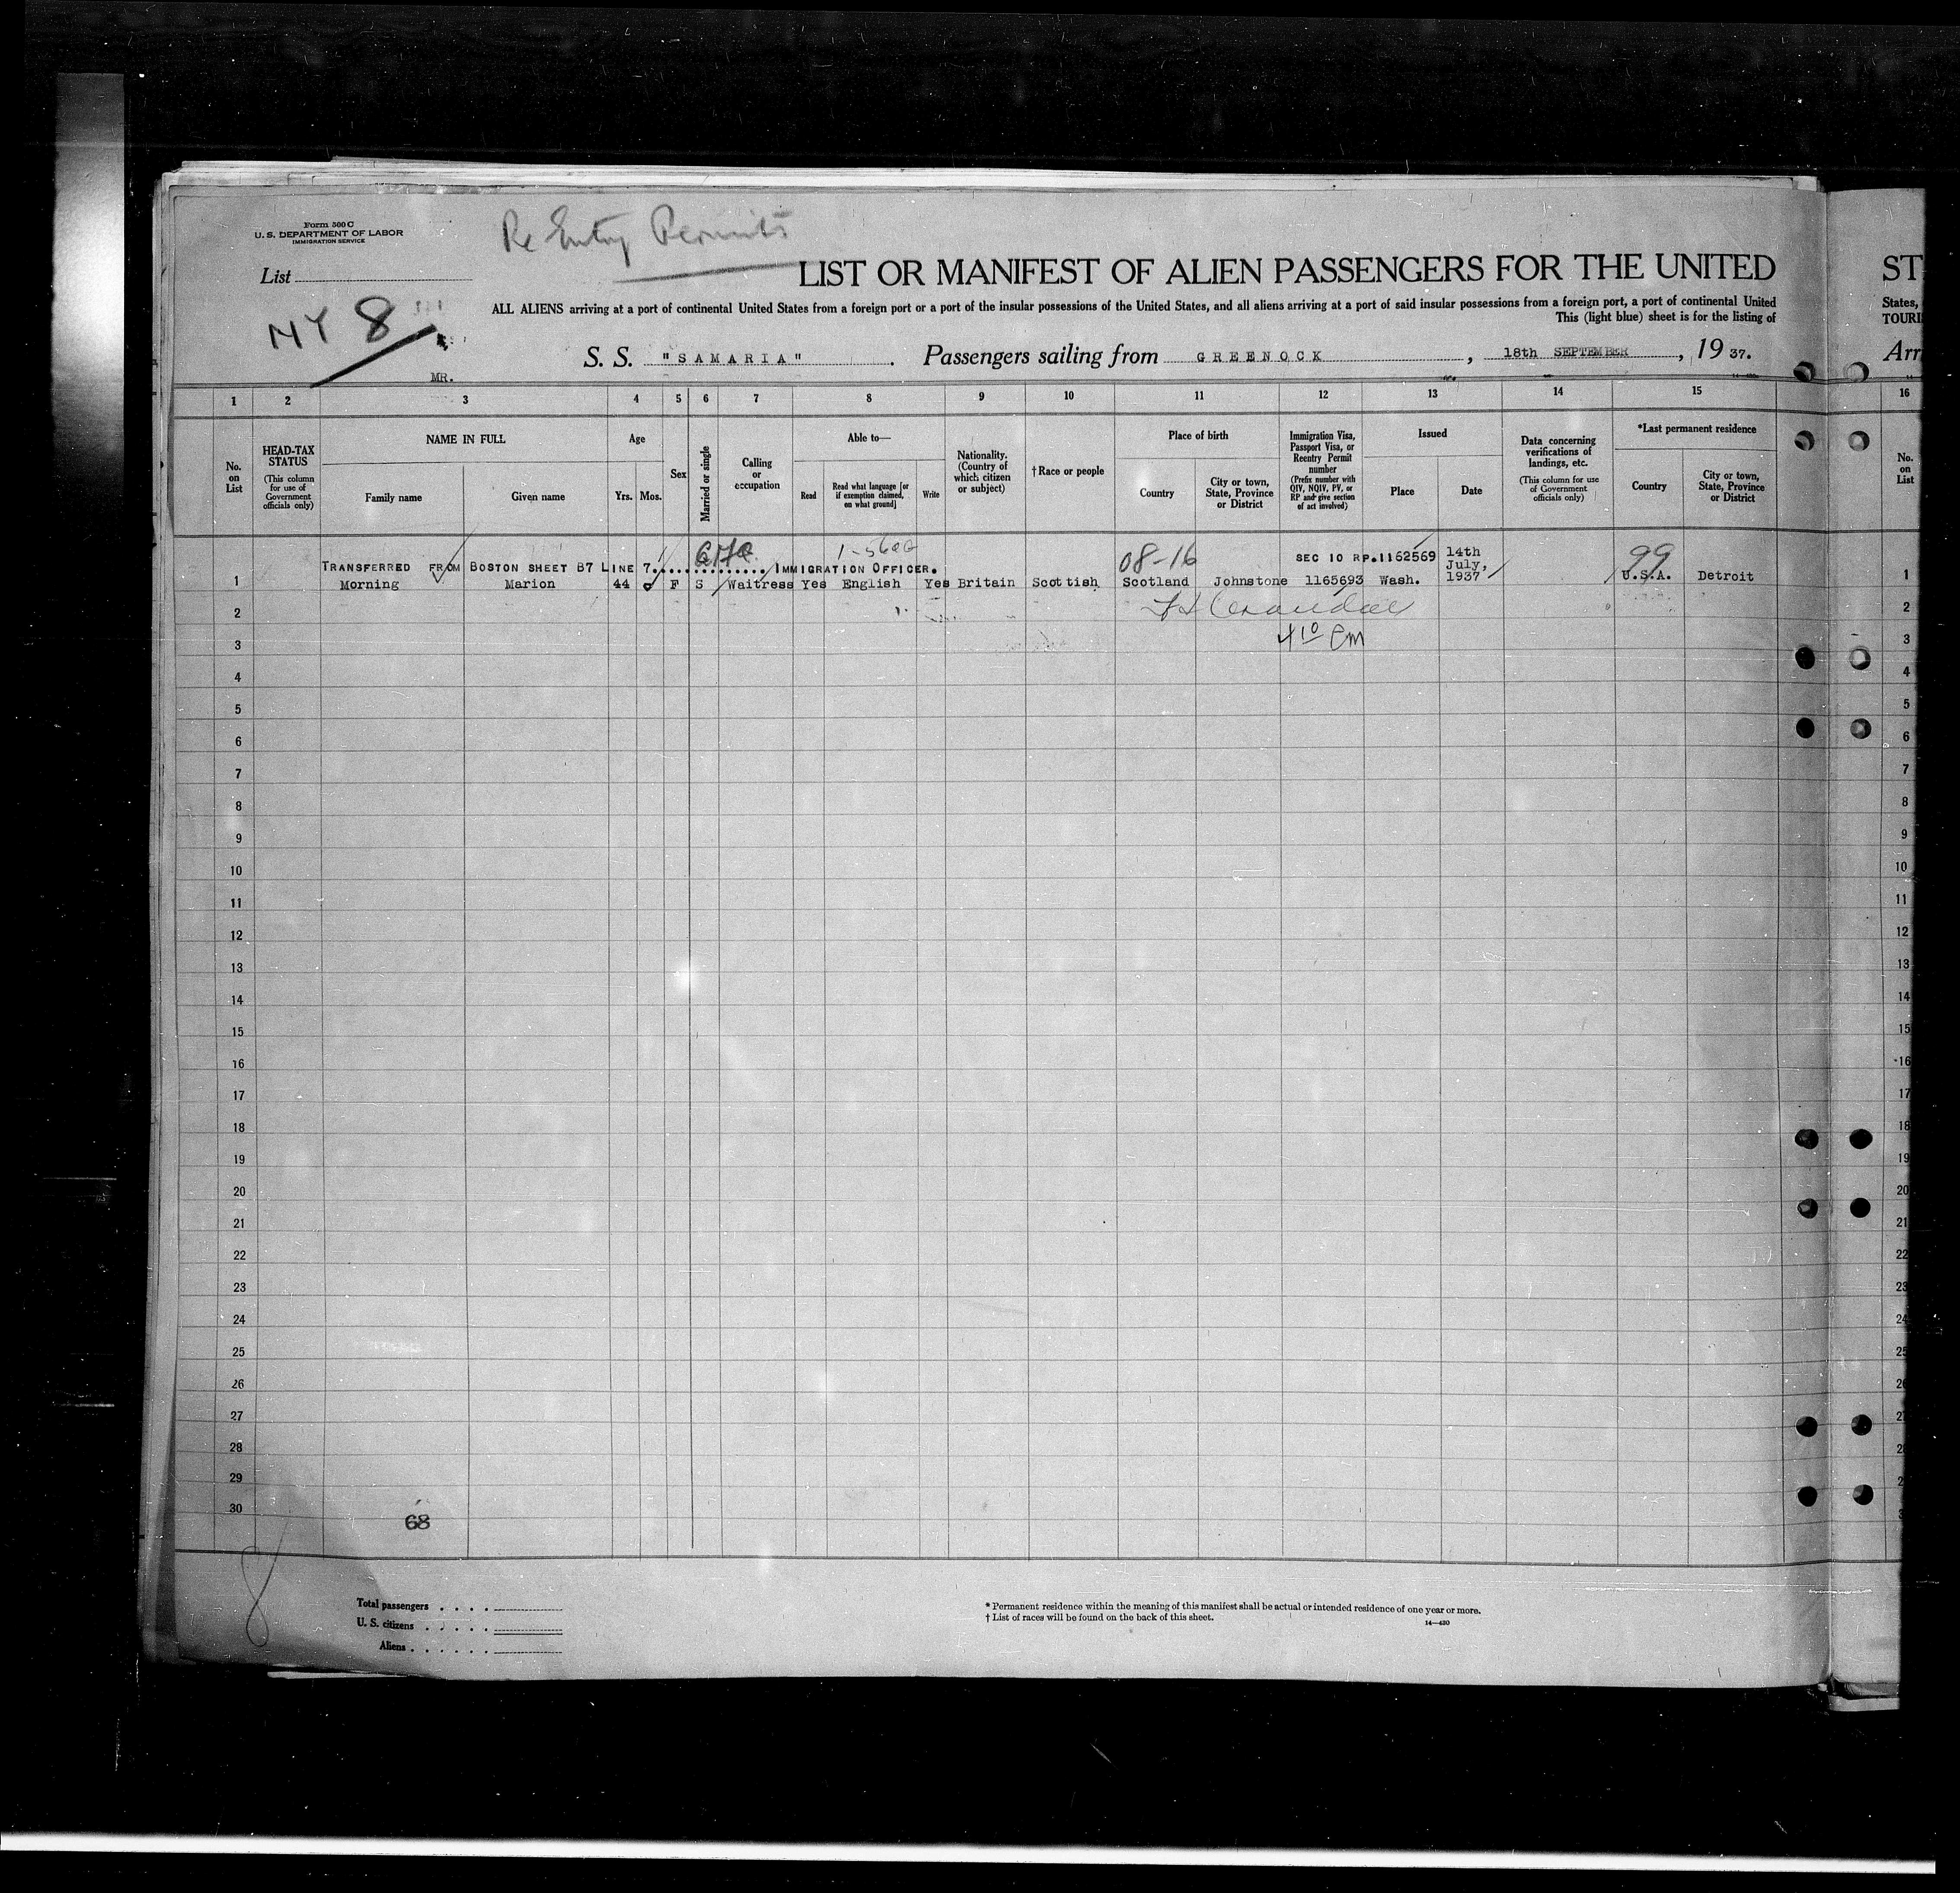 Form 500 C
U. S. DEPARTMENT OF LABOR
IMMIGRATION SERVICE
Re Entry Permits
List
NY 8
LIST OR MANIFEST OF ALIEN PASSENGERS FOR THE UNITED
ST
ALL ALIENS arriving at a port of continental United States from a foreign port or a port of the insular possessions of the United States, and all aliens arriving at a port of said insular possessions from a foreign port, a port of continental United
States,
This (light blue) sheet is for the listing of
TOURI
S. S. "SAMARIA" . Passengers sailing from GREENOCK , 18th SEPTEMBER , 19 37.
Arr
MR.
1 2 3 4 5 6 7 8 9 10 11 12 13 14 15 16
No. on List
HEAD-TAX STATUS (This column for use of Government officials only)
NAME IN FULL
Family name
Given name
Age
Yrs. Mos.
Sex
Married or single
Calling or occupation
Able to—
Read
Read what language [or if exemption claimed, on what ground]
Write
Nationality. (Country of which citizen or subject)
† Race or people
Place of birth
Country
City or town, State, Province or District
Immigration Visa, Passport Visa, or Reentry Permit number (Prefix number with QIV, NQIV, PV, or RP and give section of act involved)
Issued
Place
Date
Data concerning verifications of landings, etc. (This column for use of Government officials only)
*Last permanent residence
Country
City or town, State, Province or District
No. on List
08-16
99
TRANSFERRED FROM BOSTON SHEET B7 LINE 7 IMMIGRATION OFFICER.
SEC 10 RP.1162569 14th July, 1937
1 Morning Marion 44 F S Waitress Yes English Yes Britain Scottish Scotland Johnstone 1165693 Wash. U.S.A. Detroit 1
2 2
3 410 Pm 3
4 4
5 5
6 6
7 7
8 8
9 9
10 10
11 11
12 12
13 13
14 14
15 15
16 16
17 17
18 18
19 19
20 20
21 21
22 22
23 23
24 24
25 25
26
27
28
29
30
68
8
Total passengers . . . .
U. S. citizens . . . . .
Aliens . . . . . .
* Permanent residence within the meaning of this manifest shall be actual or intended residence of one year or more.
† List of races will be found on the back of this sheet.
14—430